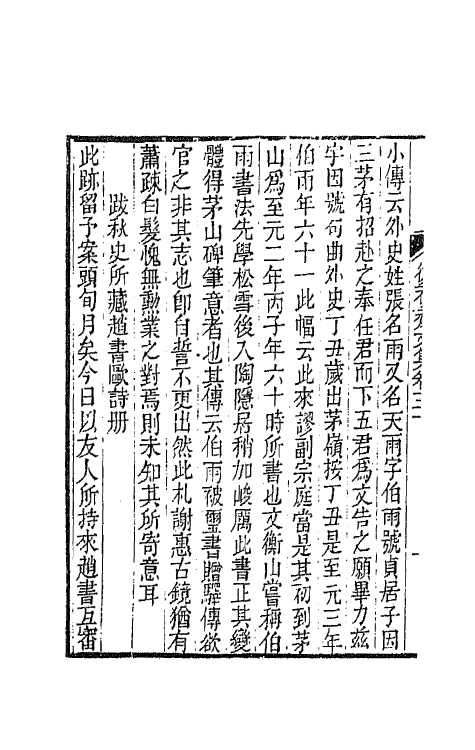 小傳云外史姓張名雨又名天雨字伯雨號貞居子因
三茅有招赴之奉任君而下五君爲文告之願畢力兹
宇因號句曲外史丁丑歲出茅嶺按丁丑是至元三年
伯雨年六十一此幅云此來謬副宗庭當是其初到茅
山爲至元二年丙子年六十時所書也文衡山嘗稱伯
雨書法先學松雪後入陶隱居稍加峻厲此書正其變
體得茅山碑筆意者也其傳云伯雨被璽書賜驛傳欲
官之非其志也卽自誓不更出然此札謝惠古鏡猶有
蕭疎白髮愧無勳業之對焉則未知其所寄意耳
跋秋史所藏趙書歐詩册
此跡留予案頭旬月矣今日以友人所持來趙書互審